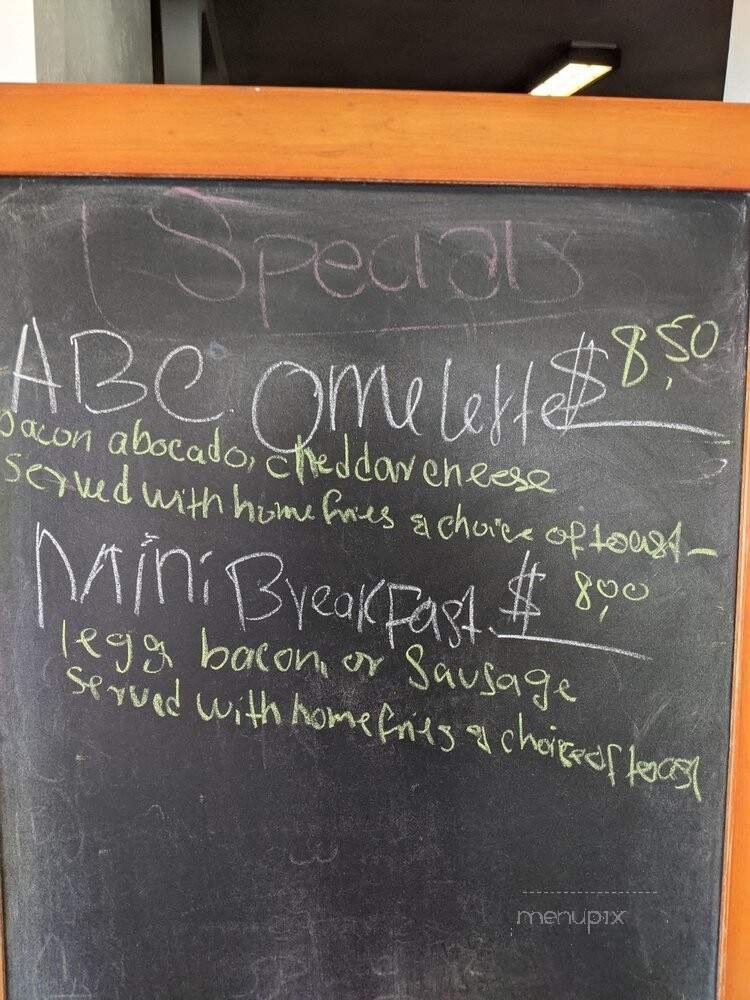 Specials
ABC Omelette $ 8,50
bacon abocado, cheddar cheese
served with home fries & choice of toast
Mini BreakFast $ 8,00
1 egg bacon, or Sausage
served with home fries & choice of toast
menupix